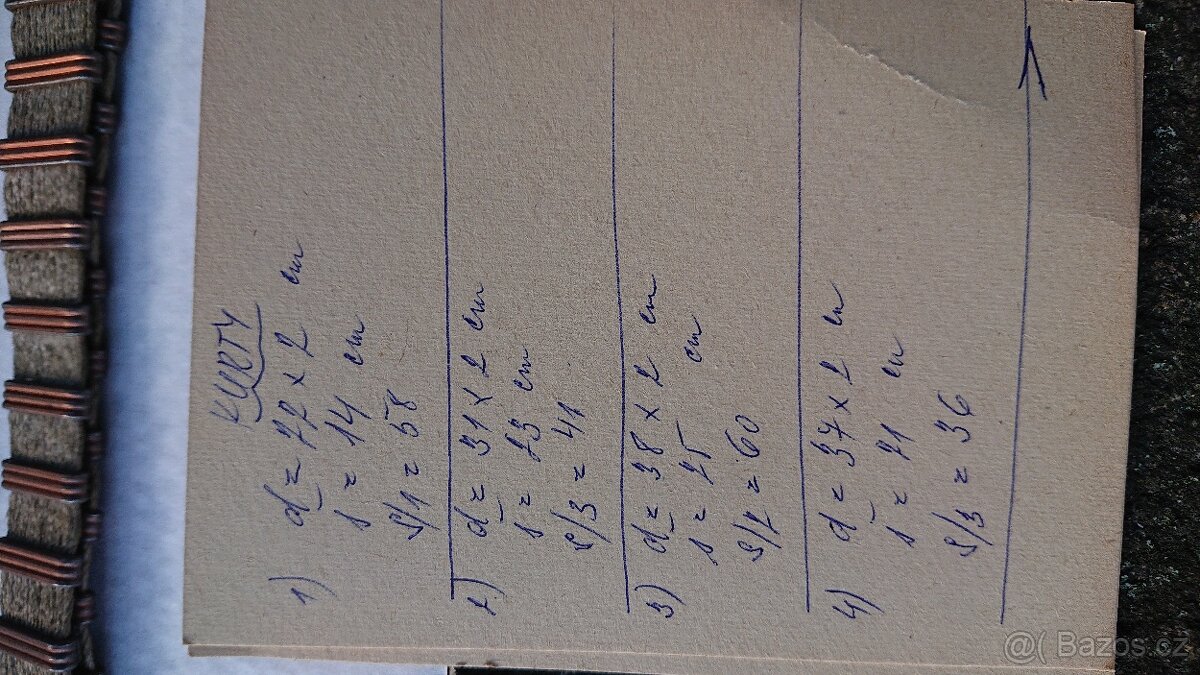 KURTY
1) d = 22 x 2 cm
s = 14 cm
S/1 = 58
2) d = 31 x 2 cm
s = 23 cm
S/3 = 41
3) d = 38 x 2 cm
s = 25 cm
S/2 = 60
4) d = 37 x 2 cm
s = 21 cm
S/3 = 36
@( Bazos.cz